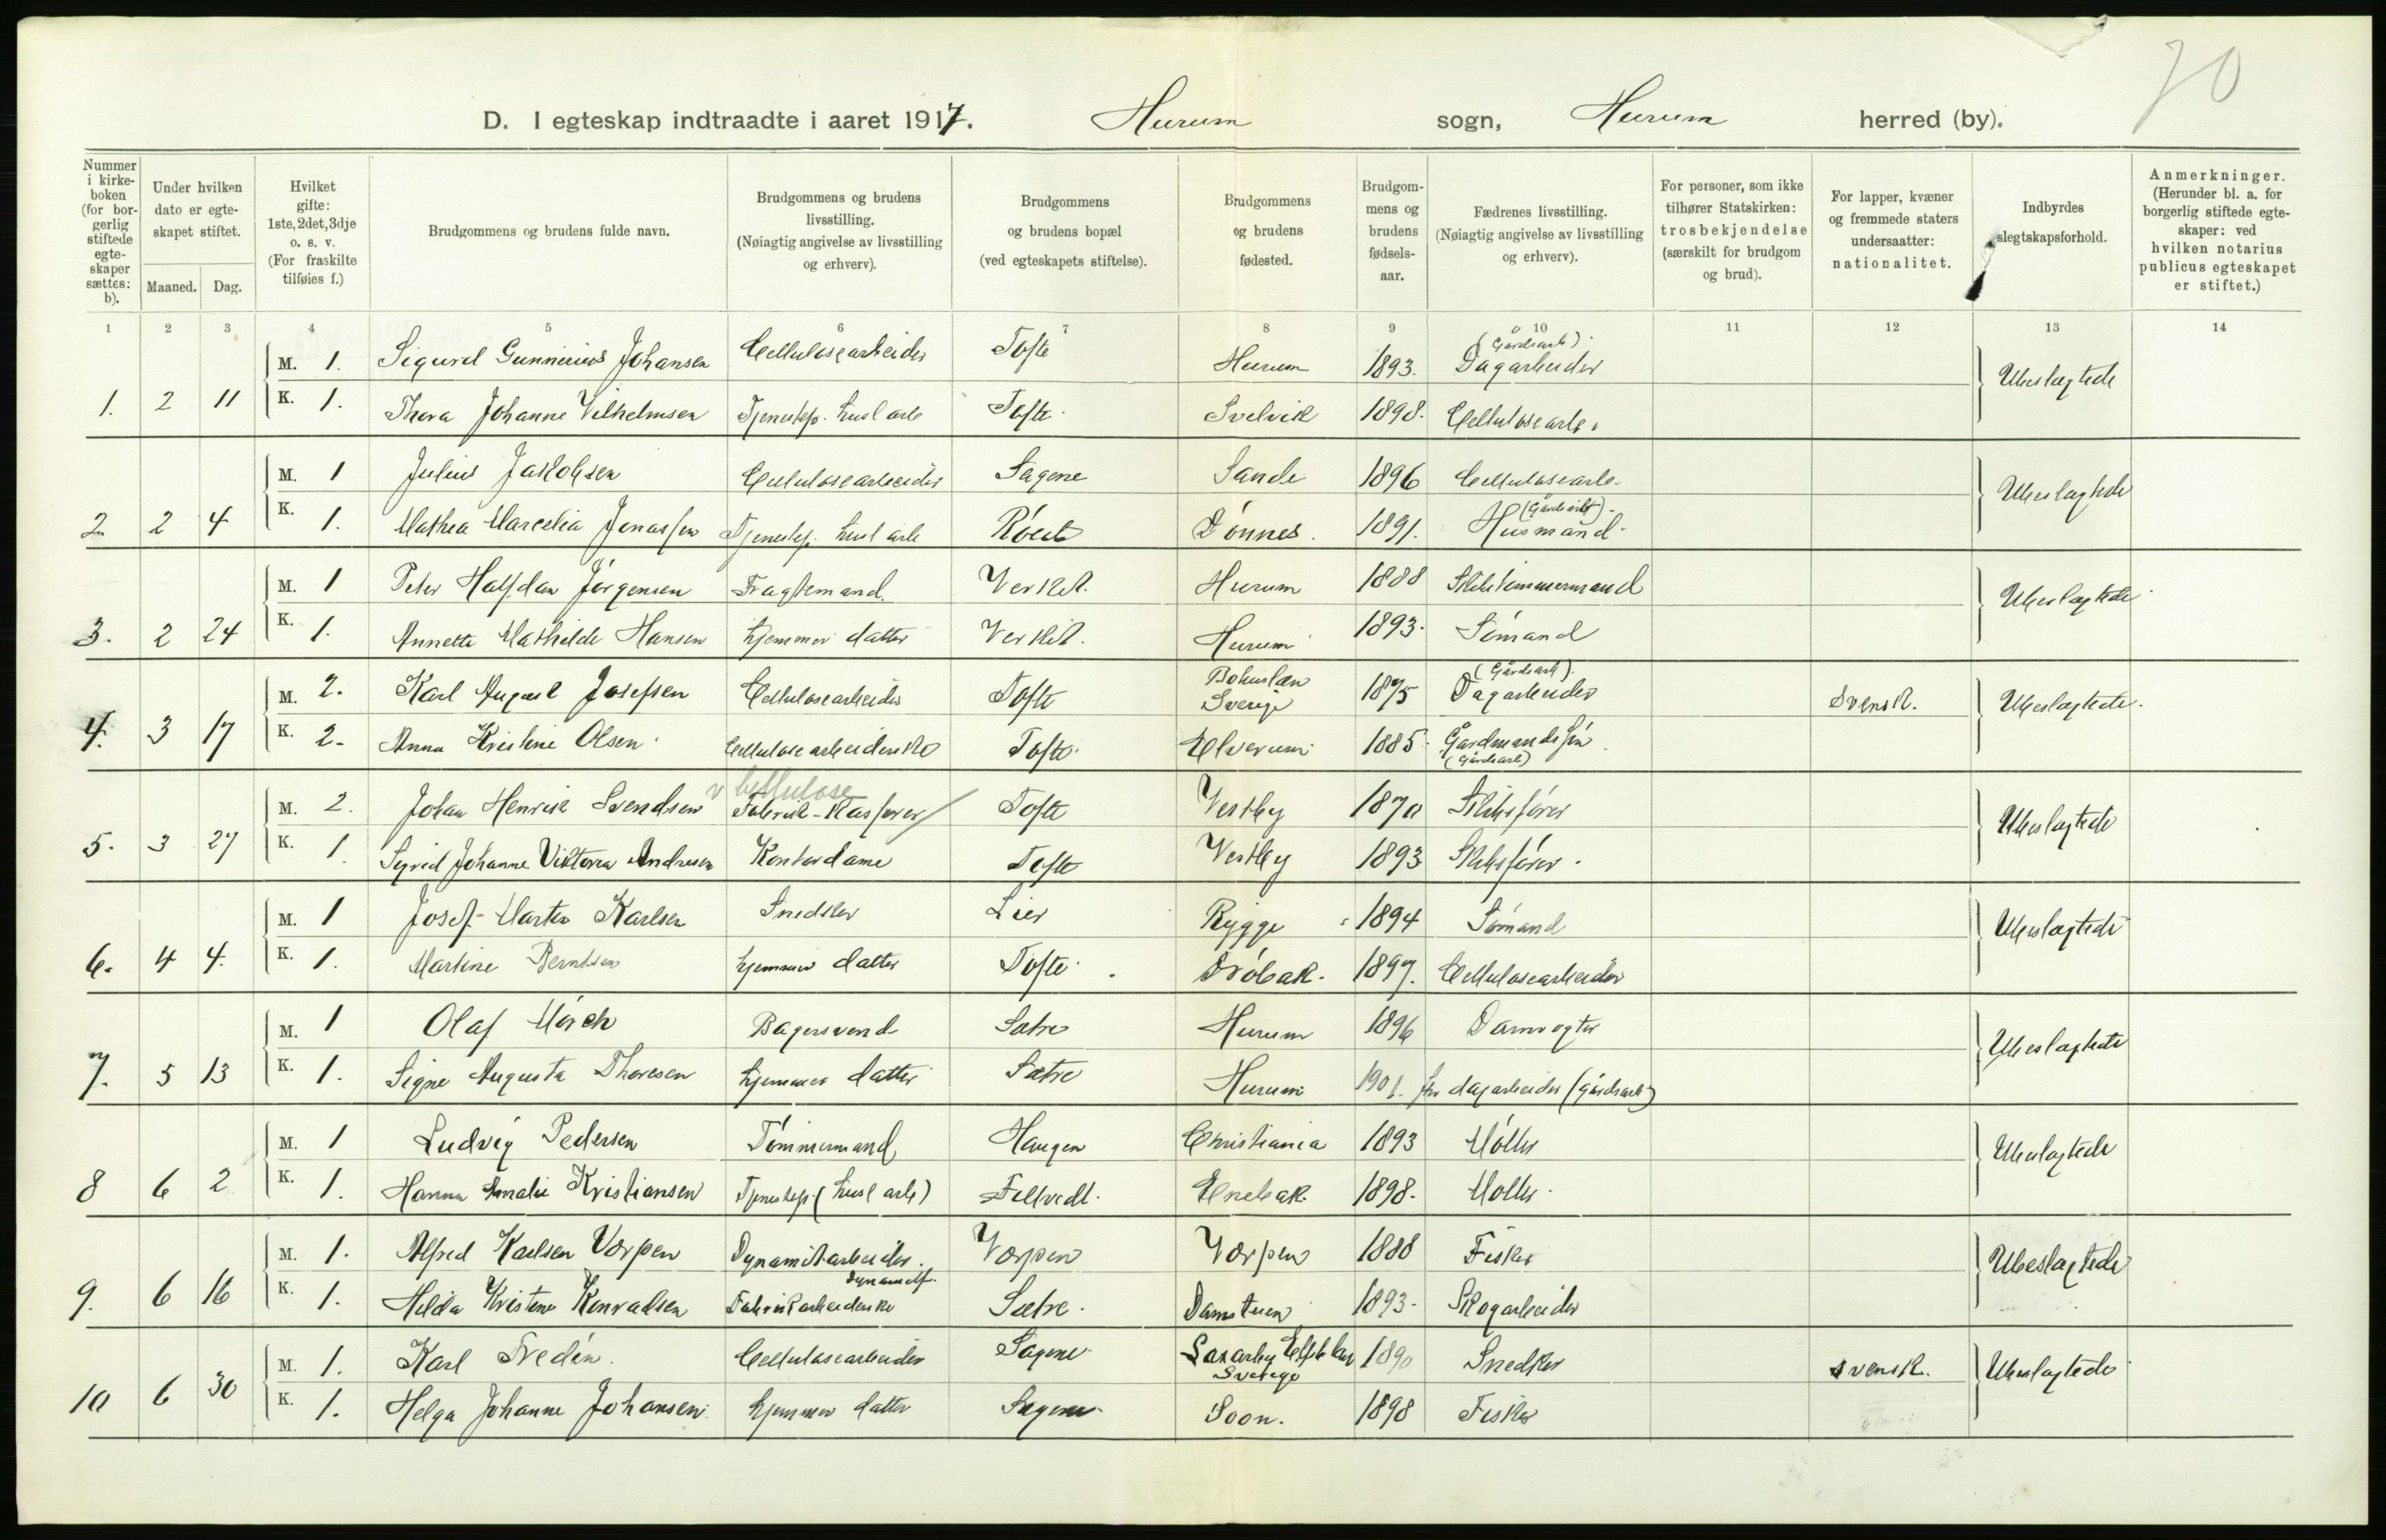 70
D. I egteskap indtraadte i aaret 1917. Hurum sogn, Hurum herred (by).
Nummer i kirke-boken (for bor-gerlig stiftede egte-skaper sættes: b).
Under hvilken dato er egte-skapet stiftet.
Maaned. Dag.
Hvilket gifte: 1ste, 2det, 3dje o. s. v. (For fraskilte tilføies f.)
Brudgommens og brudens fulde navn.
Brudgommens og brudens livsstilling. (Nøiagtig angivelse av livsstilling og erhverv).
Brudgommens og brudens bopæl (ved egteskapets stiftelse).
Brudgommens og brudens fødested.
Brudgom-mens og brudens fødsels-aar.
Fædrenes livsstilling. (Nøiagtig angivelse av livsstilling og erhverv).
For personer, som ikke tilhører Statskirken: trosbekjendelse (særskilt for brudgom og brud).
For lapper, kvæner og fremmede staters undersaatter: nationalitet.
Indbyrdes slegtskapsforhold.
Anmerkninger. (Herunder bl. a. for borgerlig stiftede egte-skaper: ved hvilken notarius publicus egteskapet er stiftet.)
1 2 3 4 5 6 7 8 9 10 11 12 13 14
M. 1. Sigurd Gunnerius Johansen Cellulosearbeider Tofte Hurum 1893. (Gårdsarb). Dagarbeider Ubeslægtede
1. 2 11 K. 1. Thora Johanne Vilhelmsen Tjenestep. husl arb Tofte. Svelvik 1898. Cellulosearb.
M. 1 Julius Jakobsen Cellulosearbeider Sagene Sande 1896 Cellulosearb. Ubeslægtede
2. 2 4 K. 1. Mathea Marcelia Jonassen Tjenestep. husl arb Dønnes. 1891. Husmand.
M. 1 Peter Halfdan Jørgensen Fragtemand. Verket. Hurum 1888 Skibstømmermand Ubeslægtede
3. 2 24 K. 1. Annette Mathilde Hansen hjemmev datter Verket. Hurum 1893. Sømand
M. 2. Karl August Josefsen Cellulosearbeider Tofte Bohuslæn Sverige 1875 (Gårdsarb). Dagarbeider Svensk. Ubeslægtede.
4. 3 17 K. 2. Anna Kristine Olsen Cellulosearbeiderske Tofte. Elverum 1885. (Gårdsarb)
M. 2. Johan Henrik Svendsen v cellulose Fabrik-Kasserer Tofte Vestby 1870 Skibsfører Ubeslægtede
5. 3 27 K. 1. Sigrid Johanne Viktoria Andresen Kontordame Tofte Vestby 1893 Skibsfører.
M. 1 Josef Martin Karlsen Snedker Lier Rygge 1894 Sømand Ubeslægtede
6. 4 4. K. 1. Martine Berntsen hjemmev datter Tofte. Drøbak. 1897. Cellulosearbeider
M. 1 Olaf Mørch Bagersvend Sætre Hurum 1896 Damvogter Ubeslægtede
7. 5 13 K. 1. Signe Augusta Thoresen hjemmev datter Sætre Hurum 1901. dagarbeider (gårdsarb)
M. 1 Ludvig Pedersen Tømmermand Haugen Christiania 1893 Møller Ubeslægtede
8 6 2 K. 1. Hanna Amalie Kristiansen Tjenestep. (husl arb) Filtvedt. Enebak. 1898. Møller.
M. 1. Alfred Karlsen Værpen Dynamitarbeider. Værpen Værpen 1888 Fisker Ubeslægtede
9. 6 16 K. 1. Hilda Kristine Konradsen dynamitf. Fabrikarbeiderske Sætre. Damstuen 1893. Skogarbeider
M. 1. Karl Fredén. Cellulosearbeider Sagene Sverige 1890 Snedker svensk. Ubeslægtede
10 6 30 K. 1. Helga Johanne Johansen hjemmev datter Sagene Soon. 1898 Fisker